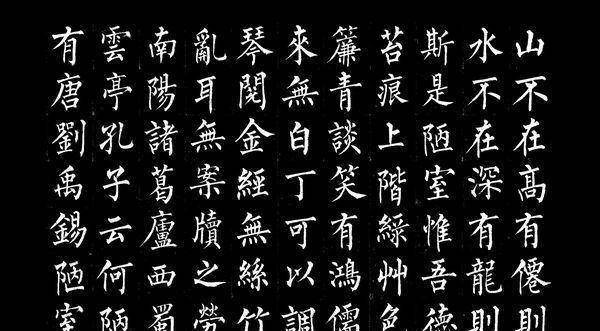 山不在髙有僊則
水不在深有龍則
斯是陋室惟吾德
苔痕上階綠艸色
簾青談笑有鴻儒
來無白丁可以調
琴閱金經無絲竹
亂耳無案牘之勞
南陽諸葛廬西蜀
雲亭孔子云何陋
有唐劉禹錫陋室